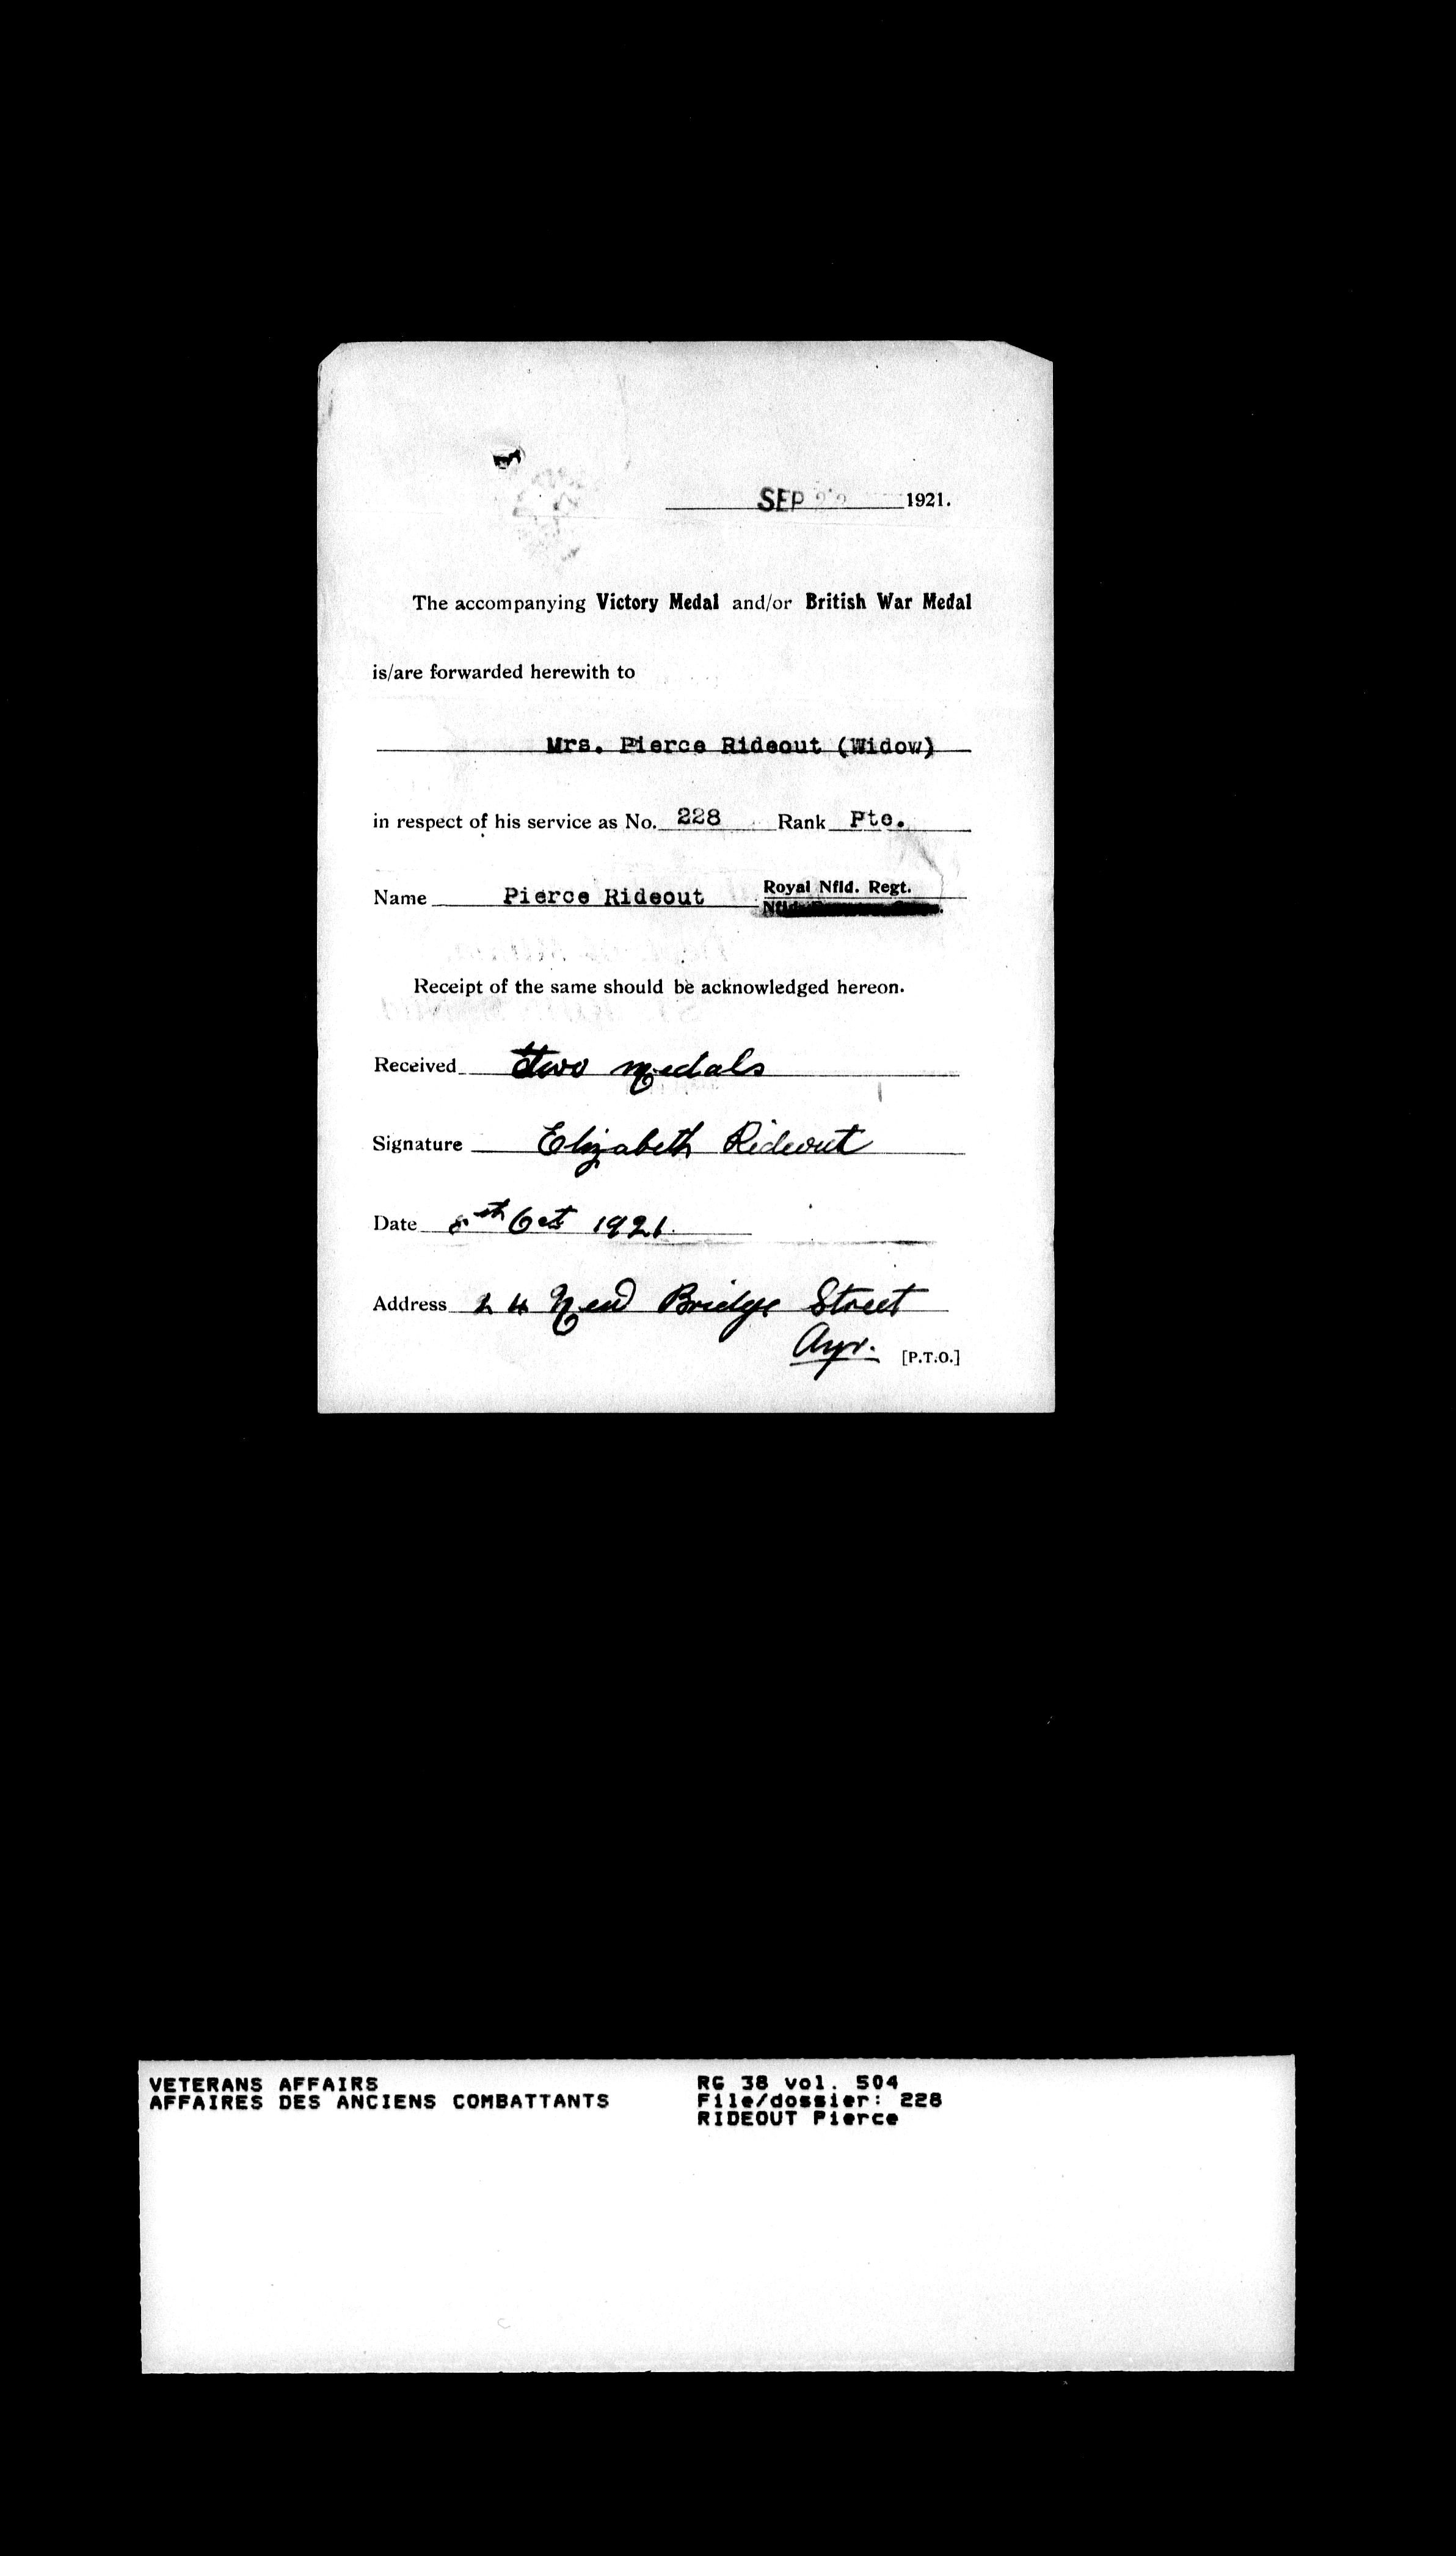 SEP 22 1921.
The accompanying Victory Medal and/or British War Medal
is/are forwarded herewith to
Mrs. Pierce Rideout (Widow)
in respect of his service as No. 228 Rank Pte.
Name Pierce Rideout Royal Nfld. Regt.
Nfld.
Receipt of the same should be acknowledged hereon.
Received two medals
Signature Elizabeth Rideout
Date 8th Oct 1921.
Address 24 New Bridge Street
Ayr. [P.T.O.]
VETERANS AFFAIRS RG 38 vol. 504
AFFAIRES DES ANCIENS COMBATTANTS File/dossier: 228
RIDEOUT Pierce